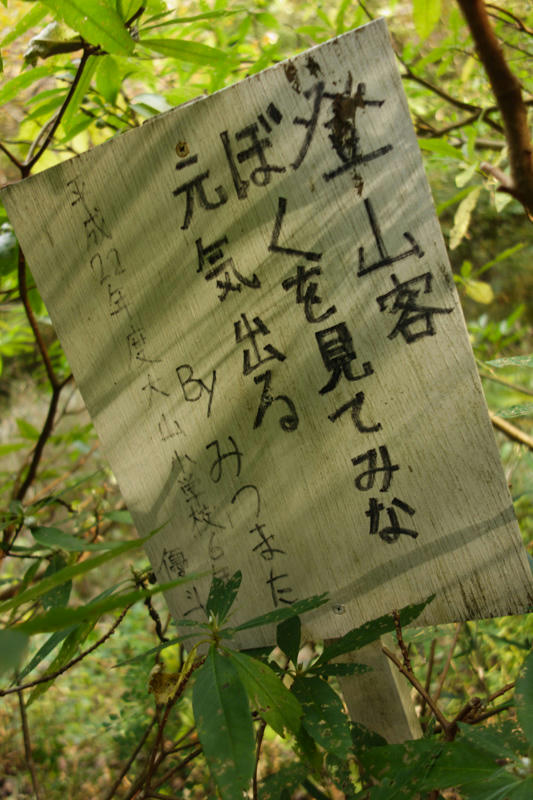 登山客
ぼくを見てみな
元気出る
By みつまた
平成22年度 大山小学校6年
優斗